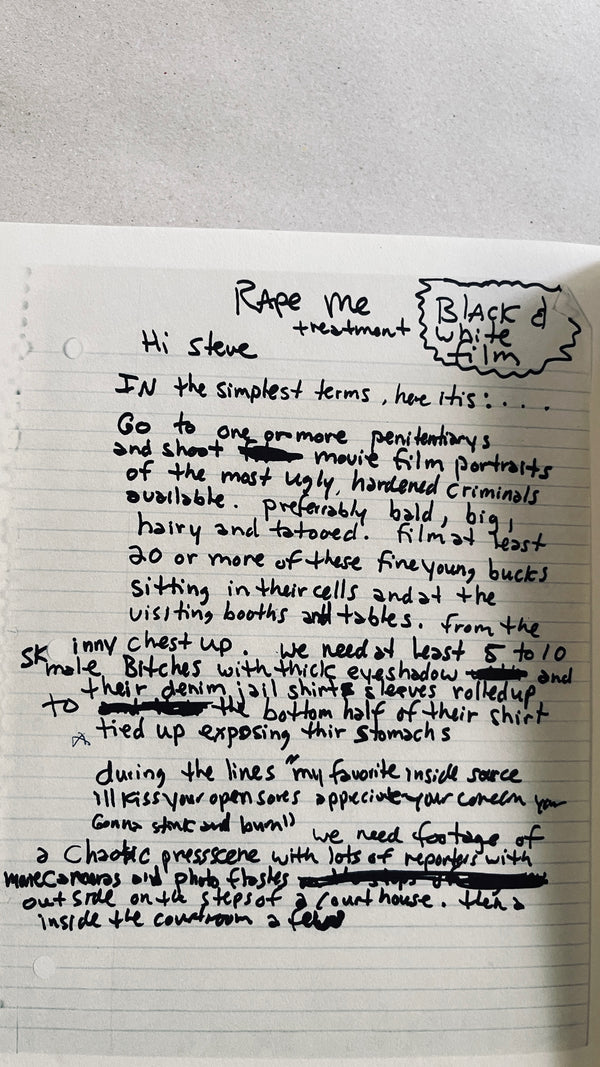 RApe me
treatment
BlAck &
white
film
Hi Steve
IN the simplest terms, here itis: . . . .
Go to one or more penitentiarys
and shoot movie film portraits
of the most ugly, hardened criminals
available. preferrably bald, big,
hairy and tatooed. film at least
20 or more of these fine young bucks
sitting in their cells and at the
visiting booths and tables. from the
skinny chest up. we need at least 5 to 10
male Bitches with thick eyeshadow and
their denim jail shirts sleeves rolled up
to the bottom half of their shirt
tied up exposing thir stomachs
during the lines "my favorite inside source
i'll kiss your open sores appreciate your concern your
Gonna stink and burn" we need footage of
a Chaotic press scene with lots of reporters with
movie cameras and photo flashes
outside on the steps of a court house. then a
inside the courtroom a few